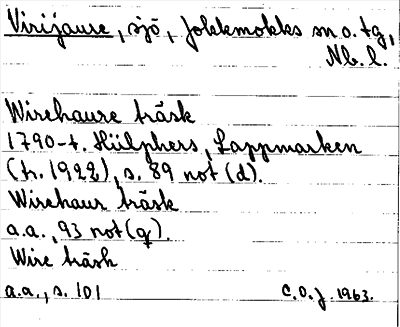 Virijaure, sjö, Jokkmokks sn o. tg,
Nb. l.
Wirehaure träsk
1790-t. Hülphers, Lappmarken
(tr. 1922), s. 89 not (d).
Wirehaur träsk
a.a., 93 not (q).
Wire träsk
a.a., s. 101
C.O.J. 1963.